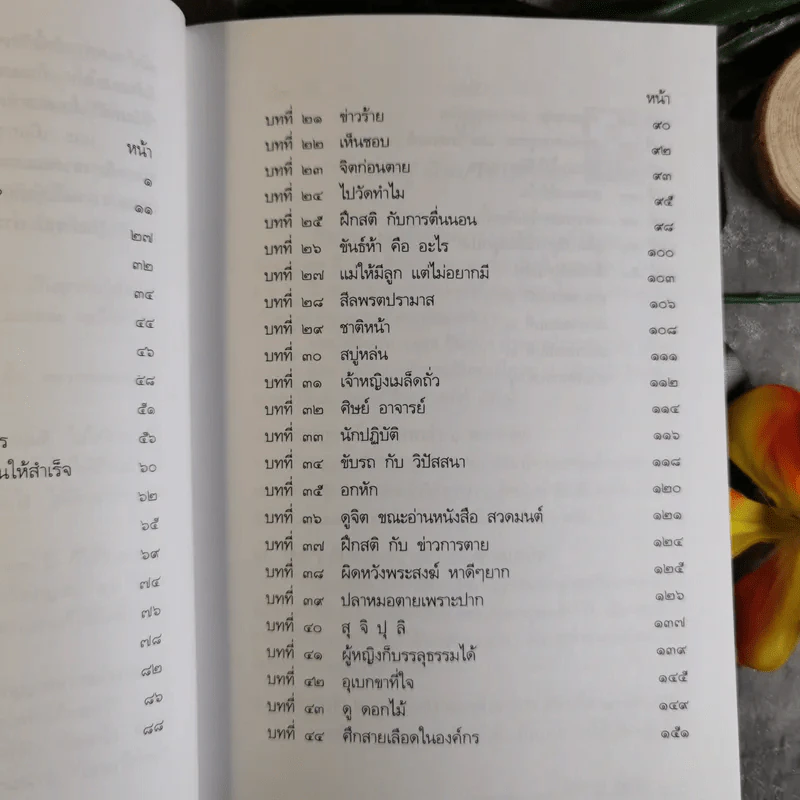 หน้า
๑
๑๑
๒๗
๓๒
๓๔
๔๔
๔๖
๔๘
๕๑
ร ๕๖
นให้สำเร็จ ๖๐
๖๒
๖๕
๖๙
๗๔
๗๖
๗๘
๘๒
๘๖
๘๘
หน้า
บทที่ ๒๑ ข่าวร้าย ๙๐
บทที่ ๒๒ เห็นชอบ ๙๒
บทที่ ๒๓ จิตก่อนตาย ๙๓
บทที่ ๒๔ ไปวัดทำไม ๙๕
บทที่ ๒๕ ฝึกสติ กับการตื่นนอน ๙๘
บทที่ ๒๖ ขันธ์ห้า คือ อะไร ๑๐๐
บทที่ ๒๗ แม่ให้มีลูก แต่ไม่อยากมี ๑๐๓
บทที่ ๒๘ สีลพรตปรามาส ๑๐๖
บทที่ ๒๙ ชาติหน้า ๑๐๘
บทที่ ๓๐ สบู่หล่น ๑๑๑
บทที่ ๓๑ เจ้าหญิงเมล็ดถั่ว ๑๑๒
บทที่ ๓๒ ศิษย์ อาจารย์ ๑๑๔
บทที่ ๓๓ นักปฏิบัติ ๑๑๖
บทที่ ๓๔ ขับรถ กับ วิปัสสนา ๑๑๘
บทที่ ๓๕ อกหัก ๑๒๐
บทที่ ๓๖ ดูจิต ขณะอ่านหนังสือ สวดมนต์ ๑๒๑
บทที่ ๓๗ ฝึกสติ กับ ข่าวการตาย ๑๒๔
บทที่ ๓๘ ผิดหวังพระสงฆ์ หาดีๆยาก ๑๒๕
บทที่ ๓๙ ปลาหมอตายเพราะปาก ๑๒๖
บทที่ ๔๐ สุ จิ ปุ ลิ ๑๓๗
บทที่ ๔๑ ผู้หญิงก็บรรลุธรรมได้ ๑๓๙
บทที่ ๔๒ อุเบกขาที่ใจ ๑๔๕
บทที่ ๔๓ ดู ดอกไม้ ๑๔๙
บทที่ ๔๔ ศึกสายเลือดในองค์กร ๑๕๑